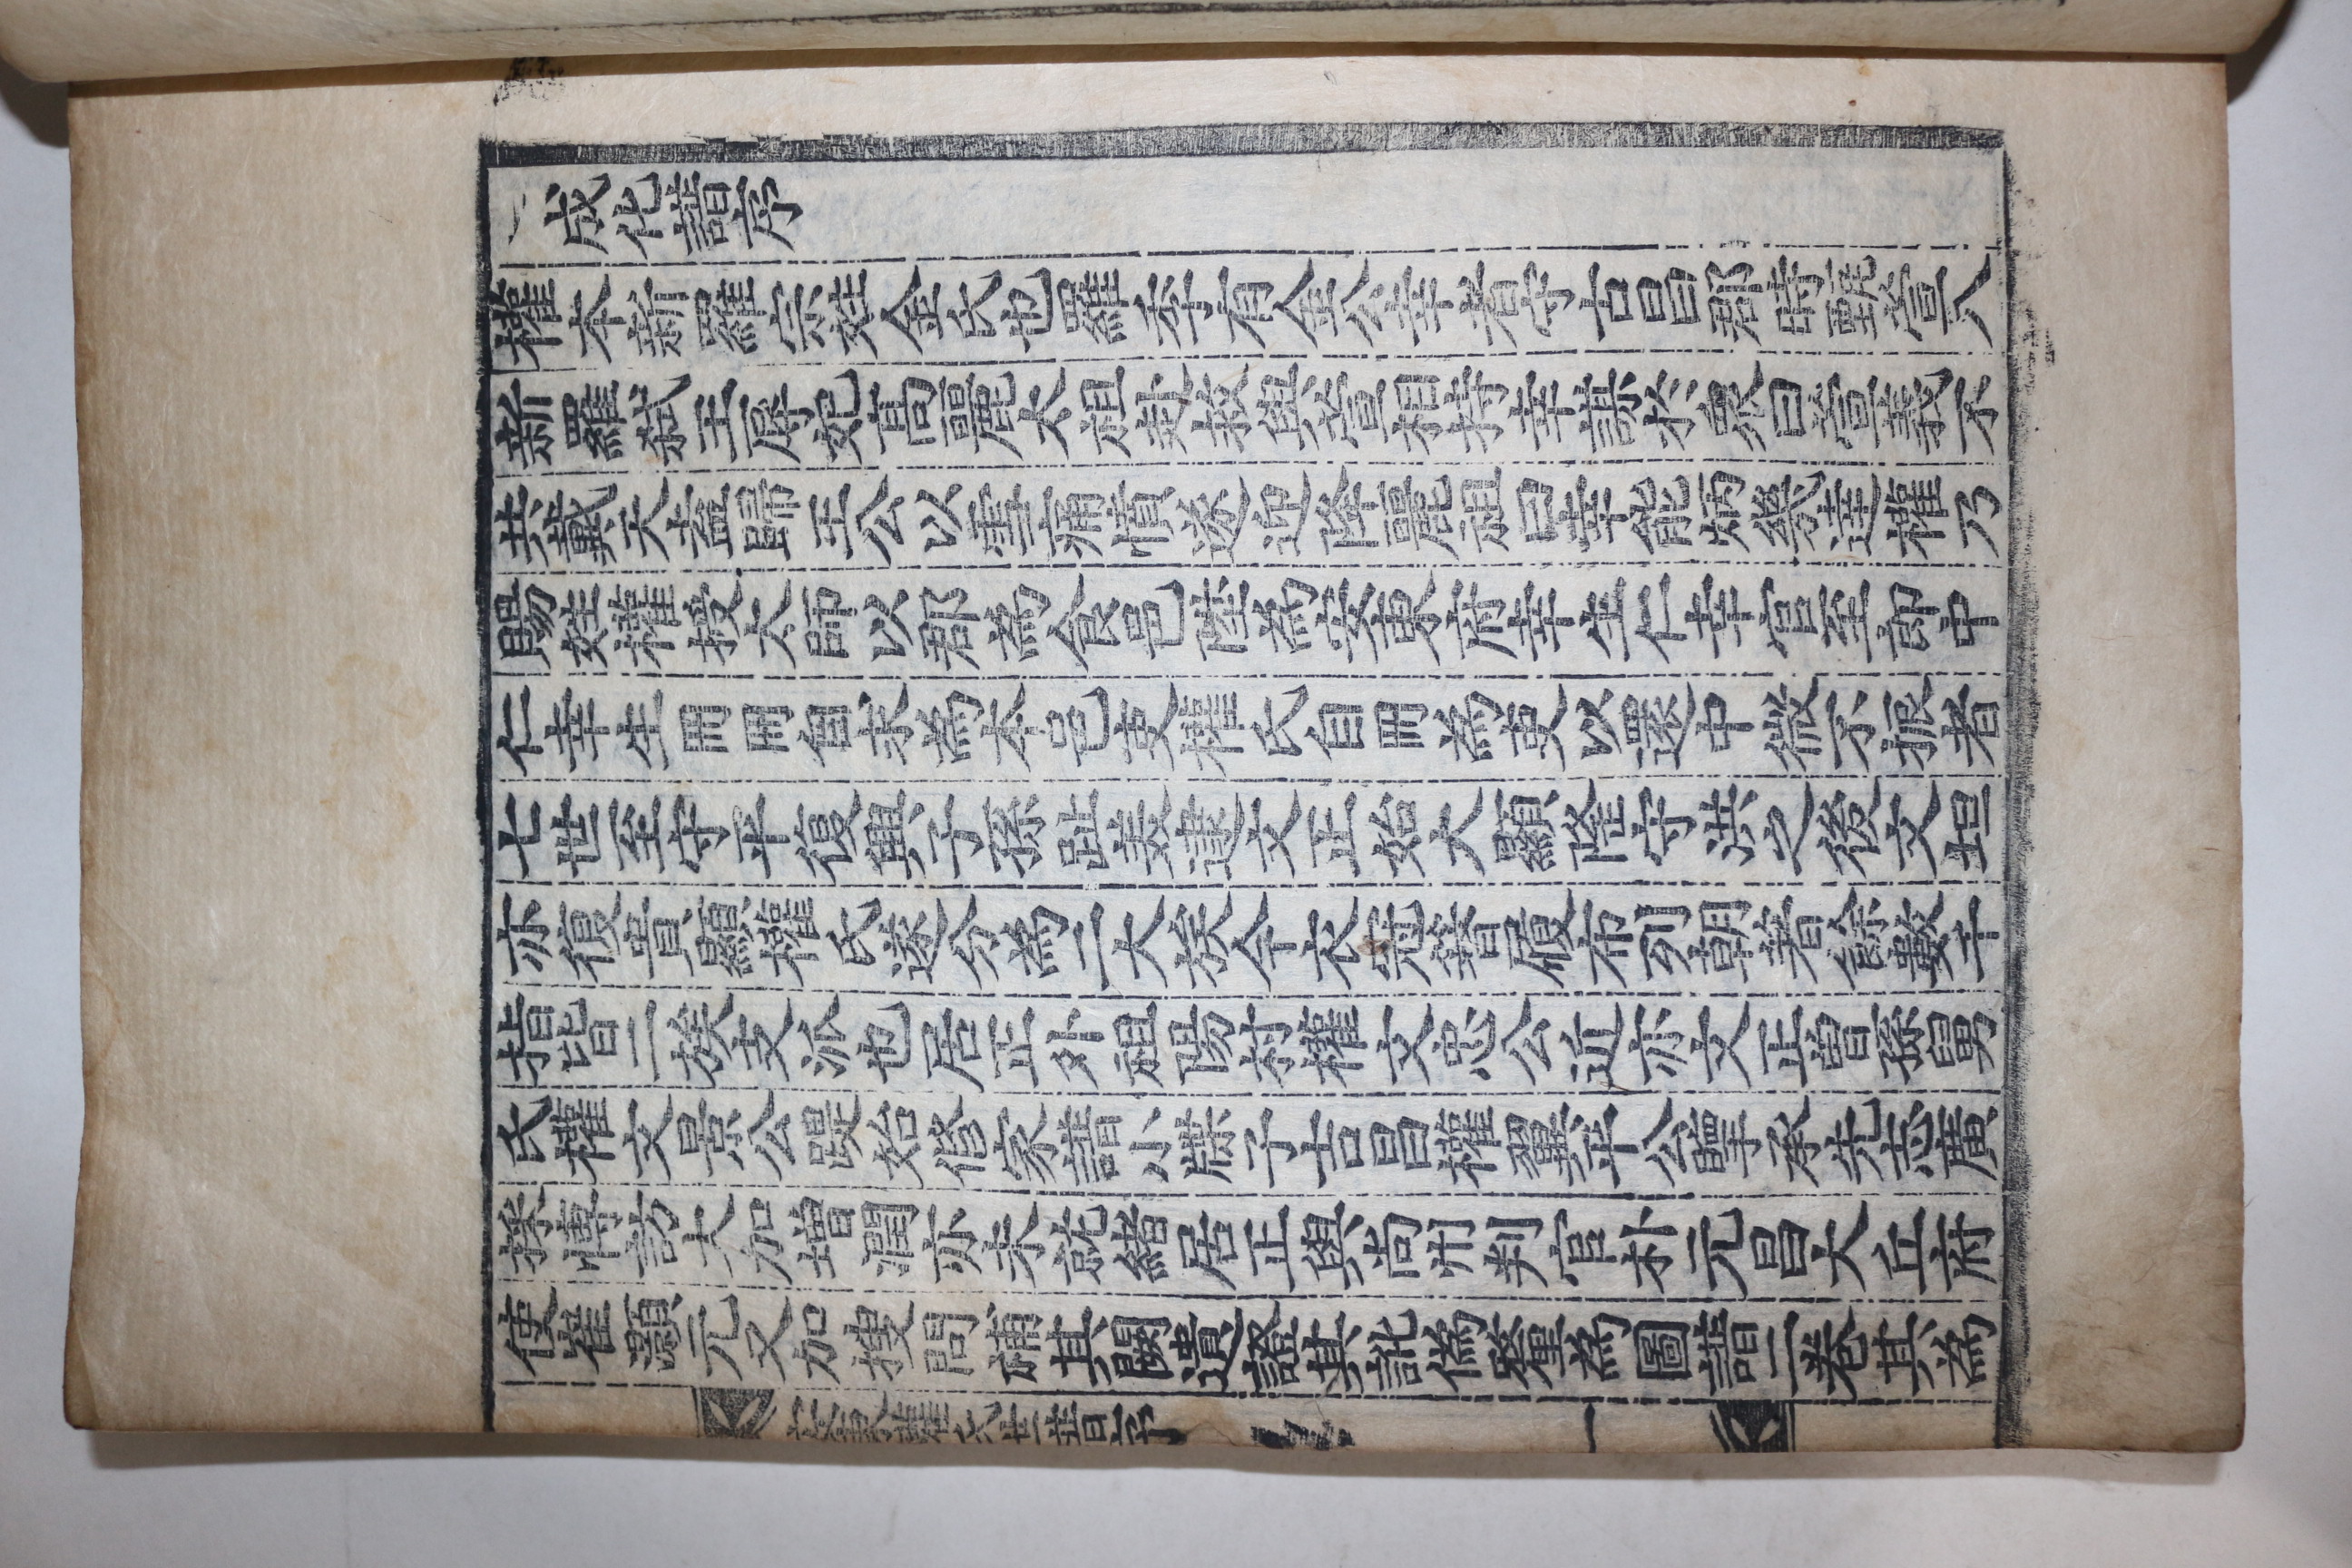 成化譜序
權本新羅宗姓金氏也羅季有金公幸者守古昌郡時甄萱入
新羅弑王辱妃高麗太祖赴救與萱相持幸謀於衆曰萱義不
共戴天盍歸王公以雪痛憤遂迎降麗祖曰幸能炳幾達權乃
賜姓權授太師以郡爲食邑陞爲安東府幸生仁幸官至郎中
仁幸生冊冊自求爲本邑吏權氏自冊爲吏以還中微不振者
七世至守平復興子孫達文正始大顯隆守洪之後文坦
亦復貴顯權氏遂分爲二大族今衣冠簪履布列朝着餘數千
指皆二族支派也居正外祖陽村權文忠公近亦文正曾孫舅
氏權文景公踶始修家譜小牒子吉昌權翼平公擥承先志廣
探博訪大加增潤亦未就緖居正與尙州判官朴元昌大丘府
使崔灝元又加搜問補其闕遺證其訛僞釐爲圖譜二卷其爲
安東權氏世譜序 一